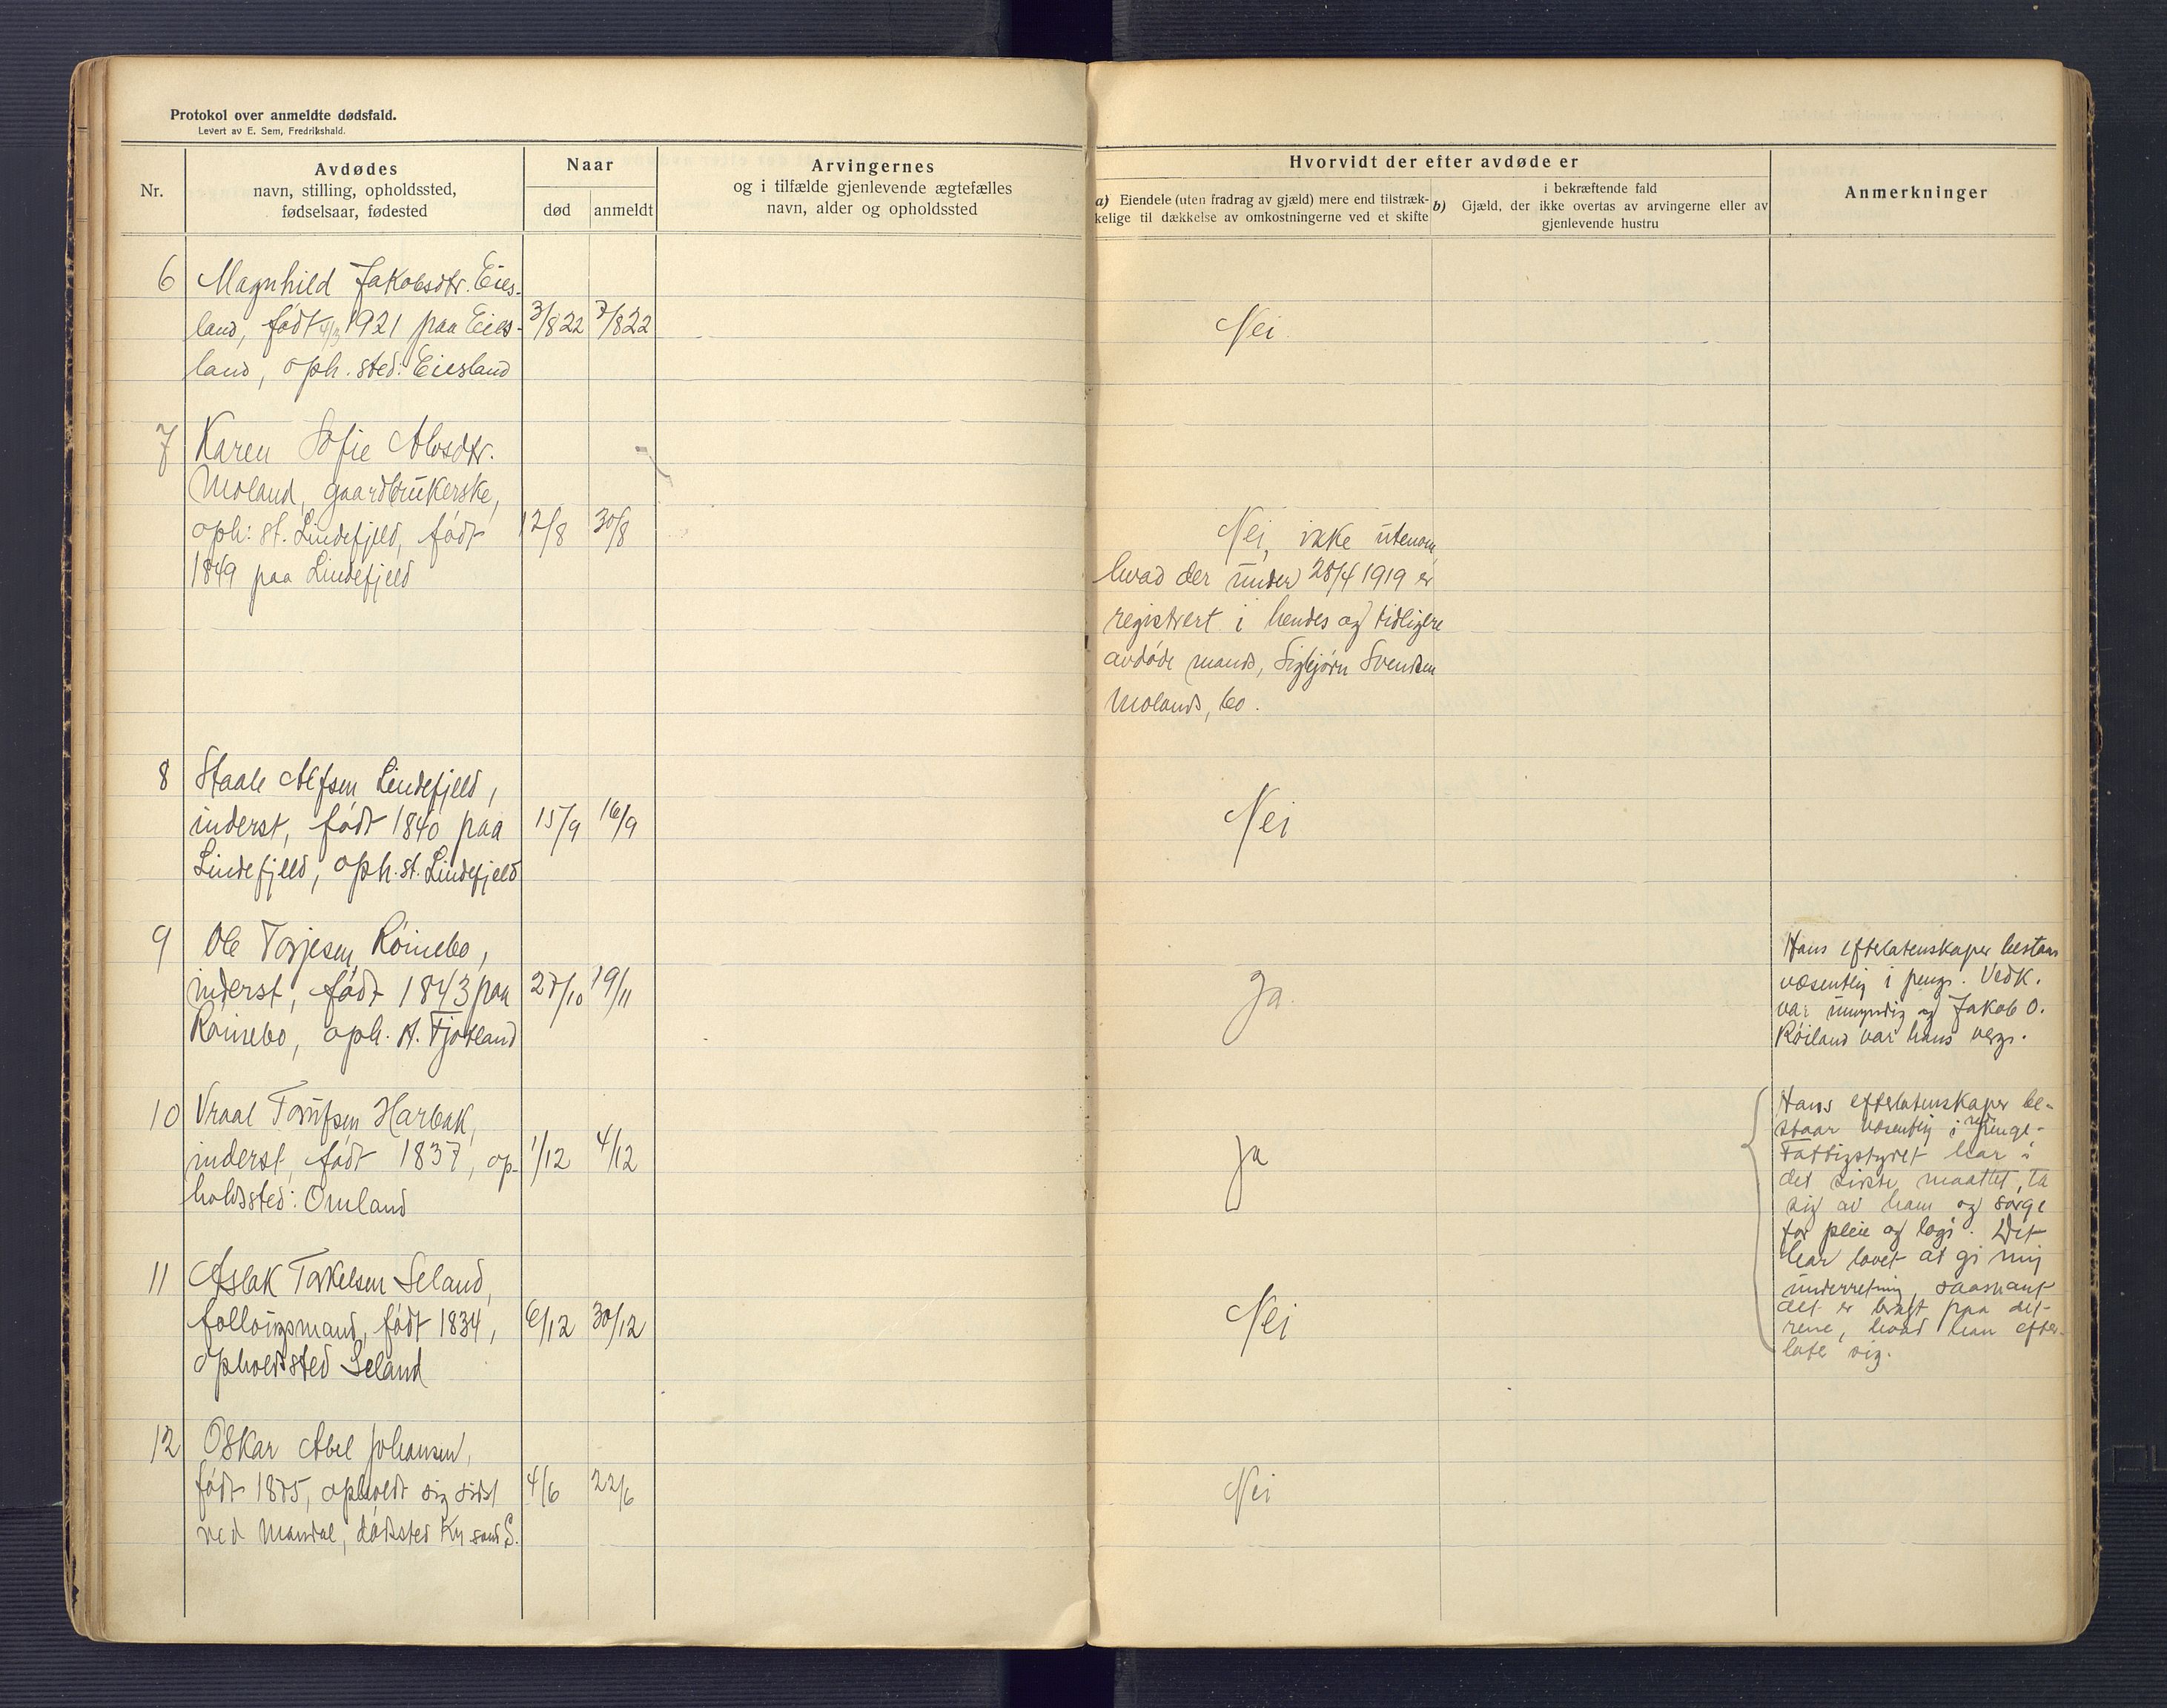 Protokol over anmeldte dødsfald.
Levert av E. Sem, Fredrikshald.
Nr.
Avdødes
navn, stilling, opholdssted,
fødselsaar, fødested
Naar
død
anmeldt
Arvingernes
og i tilfælde gjenlevende ægtefælles
navn, alder og opholdssted
Hvorvidt der efter avdøde er
a) Eiendele (uten fradrag av gjæld) mere end tilstræk-
kelige til dækkelse av omkostningerne ved et skifte
i bekræftende fald
b) Gjæld, der ikke overtas av arvingerne eller av
gjenlevende hustru
Anmerkninger
6 Magnhild Jakobsdtr. Eies-
land, født 4/3 1921 paa Eies- 3/8 22 7/8 22 Nei
land, oph. sted: Eiesland
7 Karen Sofie Alvsdtr.
Moland, gaardbrukerske,
oph: st. Lindefjeld, født 12/8 30/8
1849 paa Lindefjeld
Nei, ikke utenom
hvad der under 28/4 1919 er
registrert i hendes og tidligere
avdøde mands, Sigbjørn Svendsen
Molands, bo.
8 Staale Alfsen Lindefjeld,
inderst, født 1840 paa 15/9 16/9 Nei
Lindefjeld, oph. st. Lindefjeld
9 Ole Torjesen Røinebo,
inderst, født 1843 paa 27/10 19/11 Ja.
Røinebo, oph. st. Fjotland
Hans efterlatenskaper bestaar
væsentlig i penge. Vedk.
var umyndig og Jakob O.
Røiland var hans verge.
10 Vraal Torufsen Harbak,
inderst, født 1837, op- 1/12 4/12 Ja
holdssted: Omland
Hans efterlatenskaper be-
staar væsentlig i penge.
Fattigstyret har i
det siste maattet ta
sig av ham og sørge
for pleie og logi. Det
har lovet at gi mig
underretning, saasnart
det er bragt paa det
rene, hvad han efter-
later sig.
11 Aslak Torkelsen Seland,
følloigsmand, født 1834, 6/12 30/12 Nei
opholdssted Seland
12 Oskar Abel Johansen,
født 1875, opholdt sig sidst 4/6 22/6 Nei
ved Mandal, dødssted Kr.sand S.